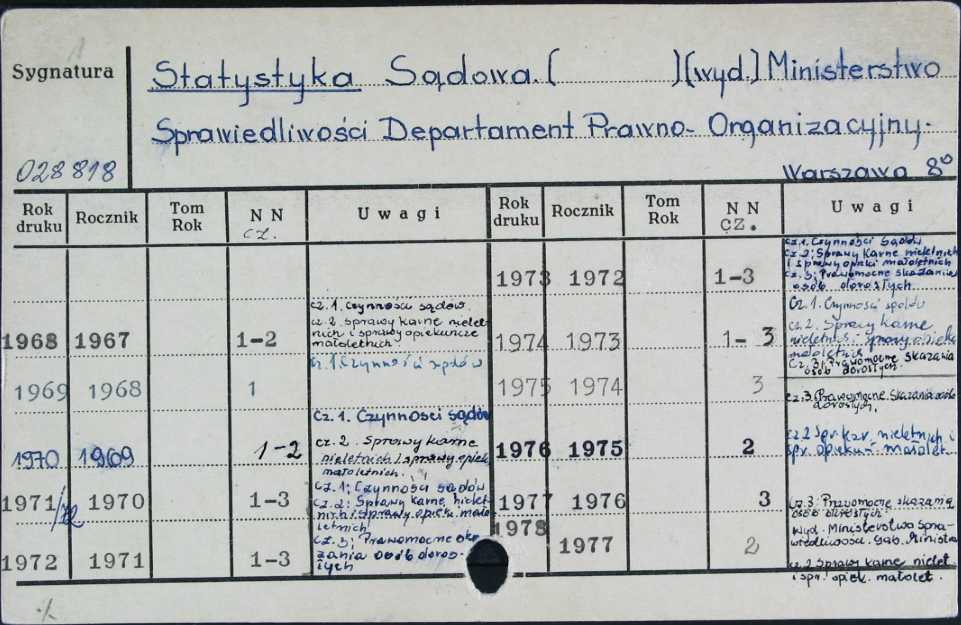 Sygnatura
Statystyka Sądowa. ( ) [wyd.] Ministerstwo
Sprawiedliwości Departament Prawno-Organizacyjny.
028818
Warszawa 8°
Rok druku
Rocznik
Tom Rok
N N
cz.
Uwagi
Rok druku
Rocznik
Tom Rok
N N
cz.
Uwagi
1968 1967 1-2
cz. 1. Czynności sądów.
cz. 2. Sprawy karne nielet-
nich i sprawy opiekuńcze
małoletnich.
1969 1968 1
cz. 1 Czynności sądów
1970 1969 1-2
cz. 1. Czynności sądów
cz. 2. Sprawy karne
nieletnich i sprawy opiek.
małoletnich.
1971/72 1970 1-3
cz. 1; Czynności sądów
cz. 2: Sprawy karne nielet-
nich; sprawy opiek. mało-
letnich;
1972 1971 1-3
cz. 3; Prawomocne ska-
zania osób doros-
łych
1973 1972 1-3
cz. 1. Czynności sądów
cz. 2; Sprawy karne nieletnich
i sprawy opieki małoletnich
cz. 3; Prawomocne skazania
osób dorosłych.
1974 1973 1-3
cz. 1. Czynności sądów
cz. 2. Sprawy karne
nieletnich. sprawy opieki
małoletnich
cz. 3; Prawomocne skazania
osób dorosłych.
1975 1974 3
cz. 3. Prawomocne skazania osób
dorosłych.
1976 1975 2
cz 2 Spr. kar. nieletnich i
spr. opiekuń. małolet.
1977 1976 3
cz. 3: Prawomocne skazania
osób dorosłych.
1978 1977 2
wyd. Ministerstwo Spra-
wiedliwości. Gab. Ministra
cz. 2 Sprawy karne nielet.
i spr. opiek. małolet.